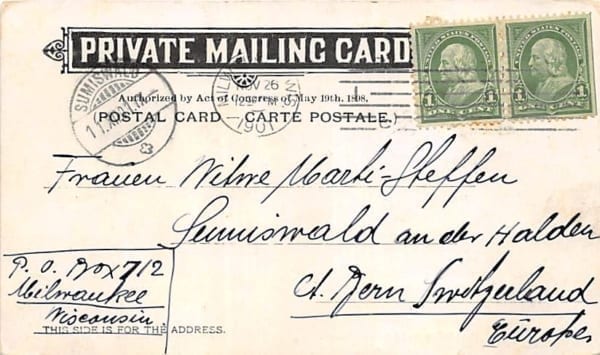 PRIVATE MAILING CARD
Authorized by Act of Congress of May 19th, 1898.
(POSTAL CARD — CARTE POSTALE.)
SUMISWALD
NOV 26
1901
UNITED STATES POSTAGE
1 1
ONE CENT
UNITED STATES POSTAGE
1 1
ONE CENT
Frauen Witwe Marti-Steffen
Sumiswald an der Halden
Ct. Bern Switzerland
Europe
P. O. Box 712
Milwaukee
Wisconsin
THIS SIDE IS FOR THE ADDRESS.